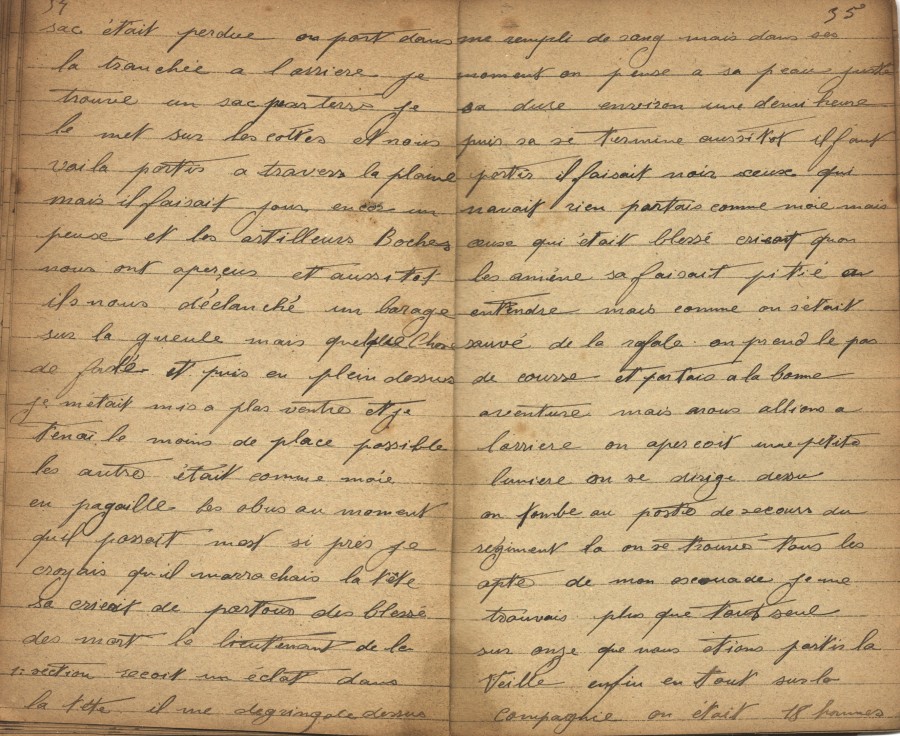 34
sac était perdue on part dans
la tranchée a larriere je
trouve un sac par terre je
le met sur les cottes et nous
voila partis a travers la plaine
mais il faisait jour encor un
peuse et les artilleurs Boches
nous ont aperçus et aussitot
ils nous déclanché un barage
sur la gueule mais quelque Chose
de fadé et puis en plein dessus
je metait mis a plas ventre et je
tenai le moins de place possible
les autre était comme moie
en pagaille les obus au moment
quil passait mest si pres je
croyais qu'il marrachais la tête
sa crieait de partous des blessé
des mort le lieutenant de la
1e section recoit un éclat dans
la tête il me degringole dessus
35
me rempli de sang mais dans ses
moment on pense a sa peau juste
sa dure environ une demi heure
puis sa se termine aussitot il faut
partir il faisait noir ceux qui
navait rien partais comme moie mais
ceuse qui était blessé crieait quon
les amène sa faisait pitié a
entendre mais comme on s'était
sauvé de la rafale on prend le pas
de course et partais a la bonne
aventure mais nous allions a
larriere on apercoit une petite
lumiere on se dirige dessu
on tombe au poste de secours du
regiment la on se trouve tous les
de mon escouade je me
trouvais plus que tout seul
sur onze que nous étions partis la
Veille enfin en tout sur la
compagnie on était 18 hommes